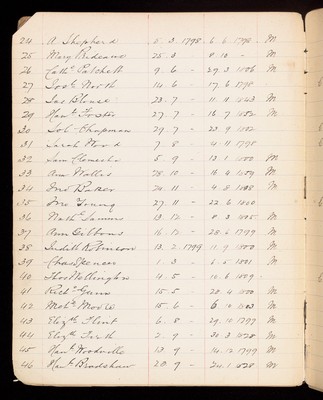 24 A Shepherd 5. 3. 1798 6. 6 1798. M
25 Mary 25. 3 8. 10 - M
26 Cath. Patchett 9. 6 - 29. 3 1806 M
27 Jos. North 14. 6 - 17. 6 1798
28 Jas 23. 7 - 11. 11 M
29 Han. Foster 27. 7 - 16. 7 1802 M
30 Joh. Chapman 29. 7 - 23. 9 1802
31 Sarah Wood 7. 8 - 4. 11 1798
32 Sam 5. 9 - 13. 1 1800 M
33 Ann Wallis 28. 10 - 16. 4 1809 M
34 Jno Baker 24. 11 - 4. 8. 1808 M
35 Young 27. 11 - 22. 6 1800
36 Nath. 13. 12 - 8. 3 1805. M
37 Ann Gibbons 16. 12 - 28. 6 1799 M
38 Judith Robinson 13. 2. 1799 11. 9 1800 M
39 Chas Spencer 1. 3 - 6. 5 1801 M
40 Thos Wellington 4. 5 - 10. 6 1809.
41 Rich. Gunn 15. 5 - 20. 4 1800 M
42 Moore 15. 6 - 6. 10 1803 M
43 Eliz. Flint 6. 8 - 29. 10 1799 M
44 Eliz. Firth 2. 9 - 30. 3 1828 M
45 Han. Woodville 13. 9 - 14. 12. 1799 M
46 Han. Bradshaw 20. 9 - 24. 1 1828 M